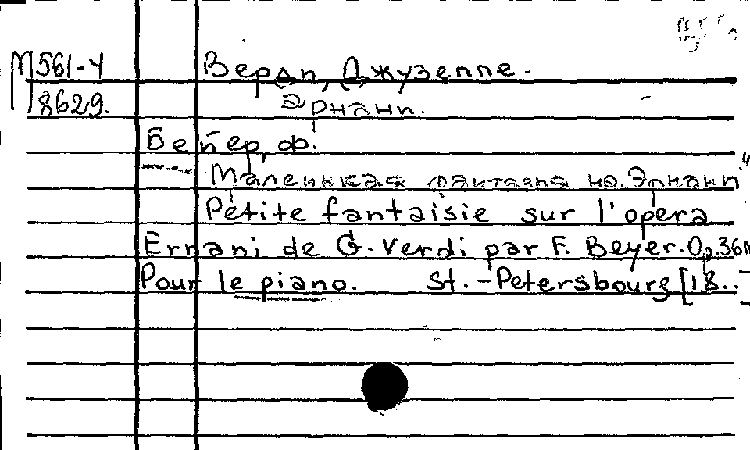 М 561-4 Верди, Джузеппе.
8629. Эрнани.
Бейер, Ф.
Маленькая фантазия на "Эрнани"
Petite fantaisie sur l'opera
Ernani de G. Verdi par F. Beyer. Op. 36
Pour le piano. St.-Petersbourg [18..